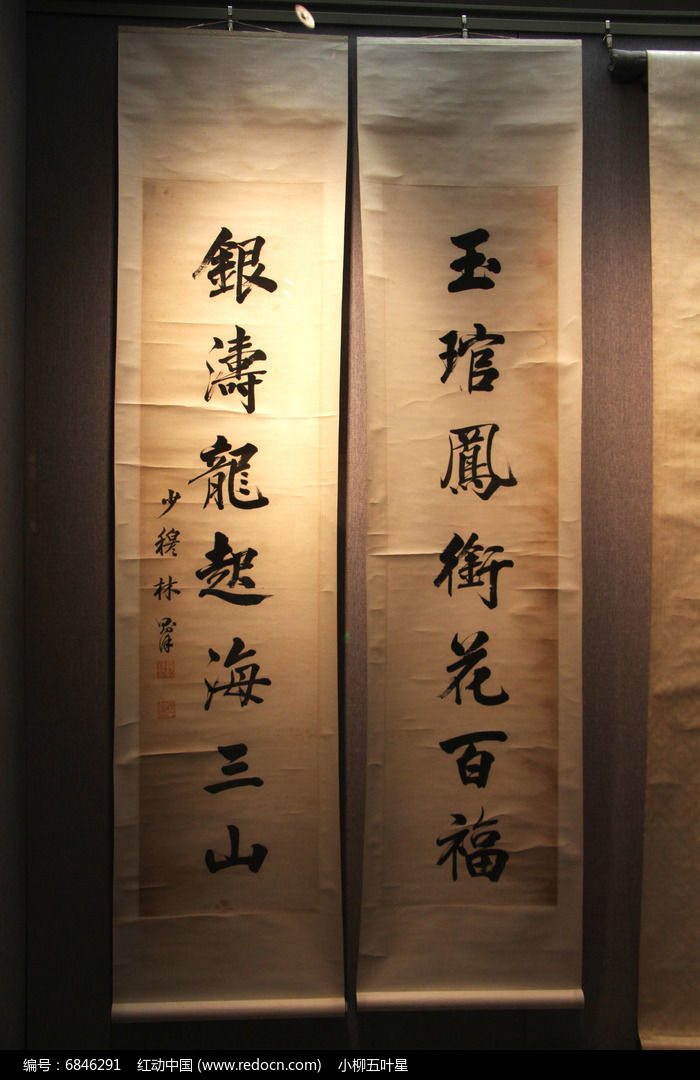 玉琯鳳銜花百福
銀濤龍起海三山
少穆林
编号：6846291 红动中国 (www.redocn.com) 小柳五叶星